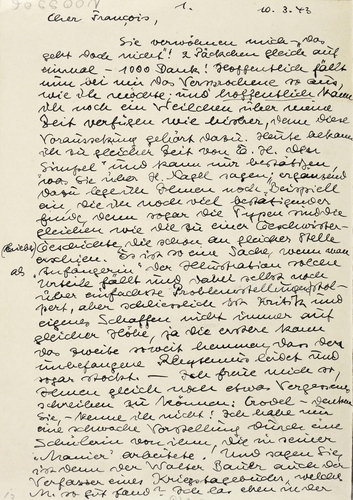 1. 10.3.43
Cher François,
Sie verwöhnen mich, das
geht doch nicht! 2 Päckchen gleich auf
einmal - 1000 Dank! Hoffentlich fällt
nun bei mir das Versprochene so aus,
wie ich möchte, und hoffentlich kann
ich noch ein Weilchen über meine
Zeit verfügen wie bisher, denn diese
Voraussetzung gehört dazu. Heute bekam
ich zu gleicher Zeit von H. den
"Simpel" und kann nur bestätigen,
was Sie über H. Nagel sagen; ergänzend
dazu lege ich Ihnen noch Beispiele
ein, die ich noch viel bestätigender
finde, denn sogar die Typen sind die
gleichen wie die zu einer Geschwister-
geschichte, die schon an gleicher Stelle
erschien. Es ist so eine Sache, wenn man
als "Anfängerin" der Illustration solche
Urteile fällt und dabei selbst noch
über einfachste Problemstellungen stol-
pert, aber schliesslich ist Kritik und
eigenes Schaffen nicht immer auf
gleicher Höhe, ja die erstere kann
das zweite soweit hemmen, dass der
unbefangene Rhythmus leidet und
sogar stockt. - Ich freue mich so,
Ihnen gleich noch etwas Vergessenes
schreiben zu können:
Sie, kenne ich nicht! Ich habe nur
eine schwache Vorstellung durch eine
Schülerin von ihm, die in seiner
"Manier" arbeitete! Und sagen Sie,
ist denn der Walter Bauer auch der
Verfasser eines Kriegstagebuches, welches
so gut fand? Ich las eben in der